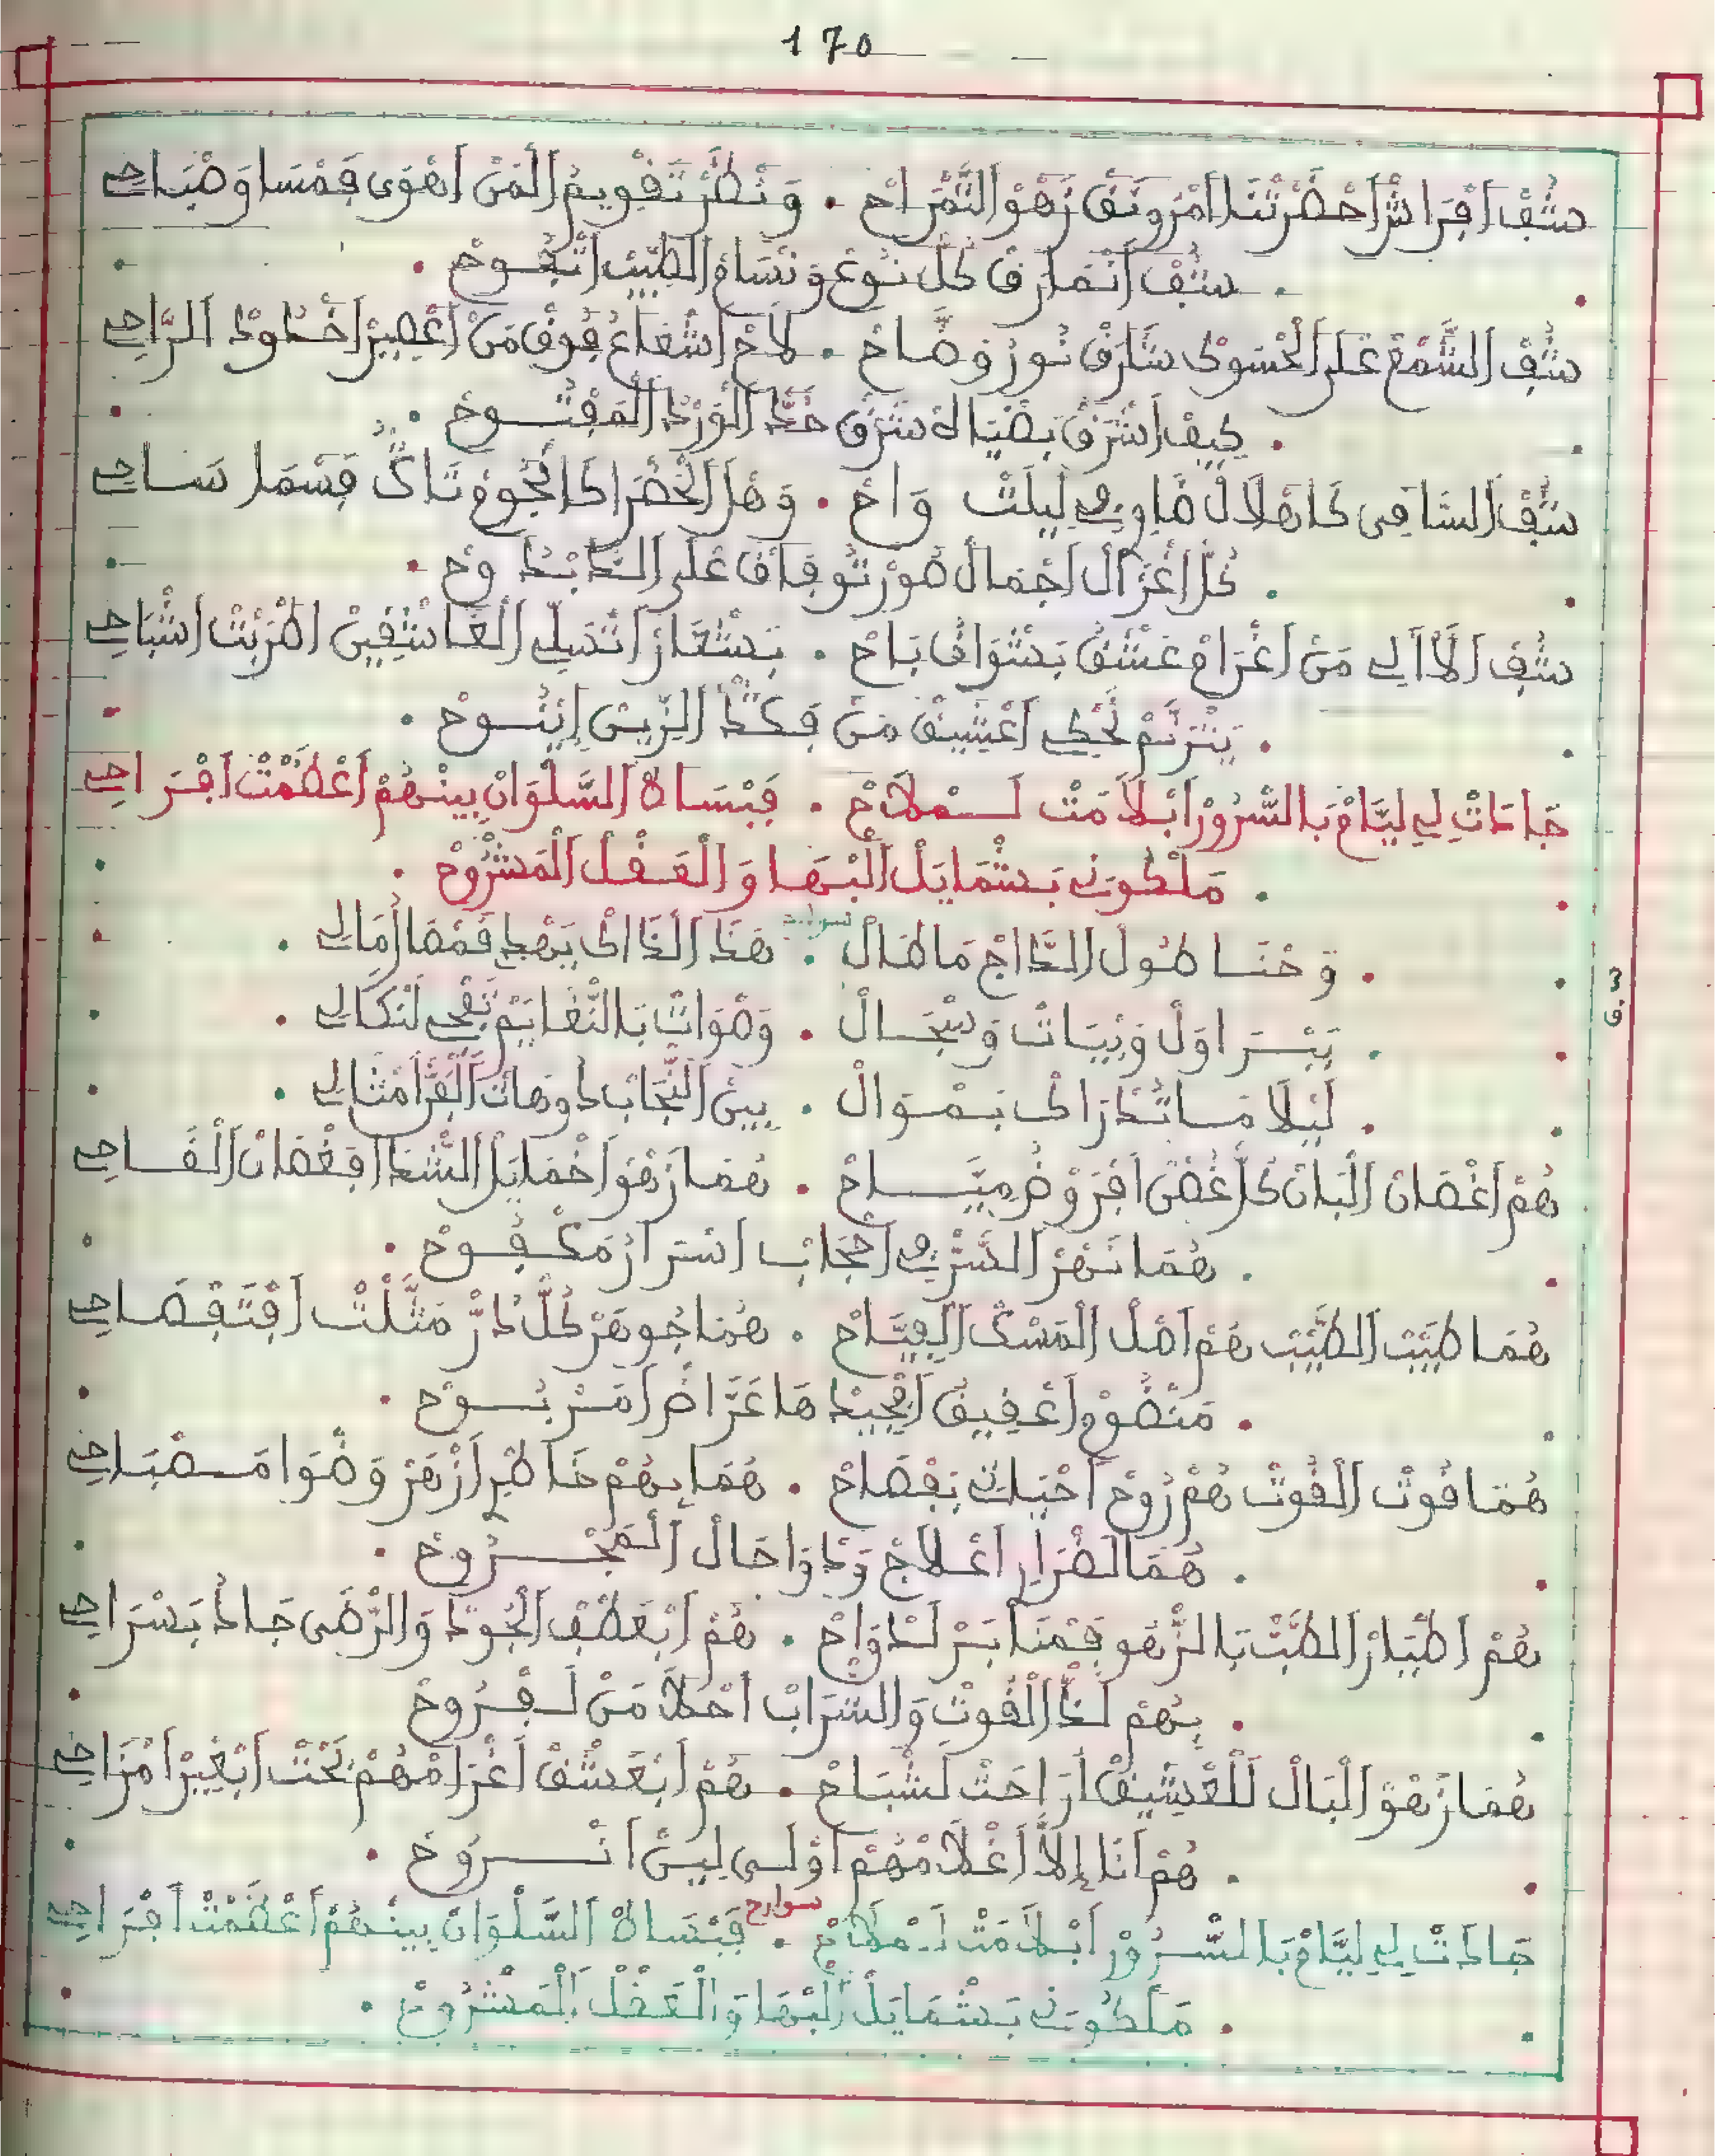 170
شُفْ افْرَاشْ احْضَرْتْنَا امْرُونَقْ زَهْوْ التَّمْرَاحْ . وَنْظَرْ تَقْوِيمْ الْمَنْ اهْوَى فَمْسَا وَصْبَاحِي
. شُفْ انْمَارَقْ كُلّ نُوعْ وَنْسَامْ الطِّيبْ اتْفُوحْ .
شُفْ الشَّمْعْ عْلَى الْحْسُوكْ شَارَقْ نُورْ وَضَّاحْ . لَاحْ اشْعَاعُ فُوقْ مَنْ اعْصِيرْ اخْدُودْ الرَّاحِ
. كِيفْ اشْرَقْ بَضْيَاهْ شَرَقْ خَدّ الْوَرْدْ الْمَفْتُوحْ .
شُفْ السَّاقِي كَاهْلَالْ ضَاوِي فِي لِيلَتْ وَاحْ . وَهْلَ الْخَضْرَا كَا نْجُومْ تَاكّْ فَسْمَا سَاحِي
. كُلّ اغْزَالْ اجْمَالْ صُورْتُو فَاقْ عْلَى الْبْدُوحْ .
شُفْ الْآلِي مَنْ اغْرَامْ عَشْقُ بَشْوَاقُ بَاحْ . بَشْعَارْ اتْسَلِّي الْعَاشْقِينْ اطْرَبْتْ اشْبَاحِي
. يَتْرَنَّمْ تَحْكِي اعْشِيقْ مَنْ فَكْدْ الزِّينْ إِينُوحْ .
جَادَتْ لِي لِيَّامْ بَالسُّرُورْ ابْلَامَتْ لَمْلَاحْ . فَبْسَاطْ السَّلْوَانْ بِينْهُمْ اعْظَمْتْ افْرَاحِي
. مَلْكُونِي بَشْمَايَلْ الْبْهَا وَالْعَقْلْ الْمَشْرُوحْ .
سوارح
. وَحْنَا طُولْ الدَّاجْ مَا طَالْ . هَذَا الْذَاكْ يَهْدِي فَمْقَامْ أُمَالِي .
. بَبْرَاوَلْ وَبْيَاتْ وَسْجَالْ . وَصْوَاتْ بَالنّْغَايَمْ تَنْفِي لَنْكَالِي .
. لِيلَا مَا تُدْرَاكْ بَمْوَالْ . بِينْ النّْجَابْ دَاوْهَاتْ الْقْرَا مْثَالِي .
ق.3
هُمْ اغْصَانْ الْبَانْ كُلّ غُصْنْ افْرَوْضُ مِيَّاحْ . هُمَا زَهْوْ اخْمَايَلْ الشّْدَا افْغْصَانْ الْقَاحِي
. هُمَا نَهْرْ السَّرّْ فِي احْجَابْ اسْرَارُ مَكْفُوحْ .
هُمَا طِيبْ الطِّيبْ هُمْ اصْلْ الْمَسْكْ الْفِيَّاحْ . هُمَا جُوهَرْ كُلّ دُرّْ مَتَّلْتْ افْتَفْصَاحِي
. مَنْضُومْ اعْقِيقْ الْجِيدْ هَا عَرَّاضْ امَرْبُوحْ .
هُمَا قُوتْ الْقُوتْ هُمْ رُوحْ احْيَاتِي بَفْصَاحْ . هُمَا بِهُمْ خَاطْرِي ازْهَرْ وَضْوَا مَصْبَاحِي
. هُمَا لَضْرَارِ اعْلَاجْ وَدْوَا حَالْ الْمَجْرُوحْ .
هُمْ اطْيَارْ الطَّبّْ بَالزّْهُو فَمْنَابَرْ لَدْوَاحْ . هُمْ ابْعَطْفْ الْجُودْ وَالرّْضَى جَادُ بَسْرَاحِي
. بِهُمْ لَدّْ الْقُوتْ وَالشْرَابْ احْلَا مَنْ لَقْرُوحْ
هُمَا زَهْوْ الْبَالْ لَلْعْشِيقْ ارَاحَتْ لَشْبَاحْ . هُمْ ابْعَشْقْ اغْرَامْهُمْ نَحْتْ ابْغِيرْ امْزَاحِي
. هُمْ أَنَا إِلَّا اغْلَامْهُمْ اوْلَى لِينْ انْرُوحْ .
سوارح
جَادَتْ لِي لِيَّامْ بَالسُّرُورْ ابْلَامَتْ لَمْلَاحْ . فَبْسَاطْ السَّلْوَانْ بِينْهُمْ اعْظَمْتْ افْرَاحِي
. مَلْكُونِي بَشْمَايَلْ الْبْهَا وَالْعَقْلْ الْمَشْرُوحْ .